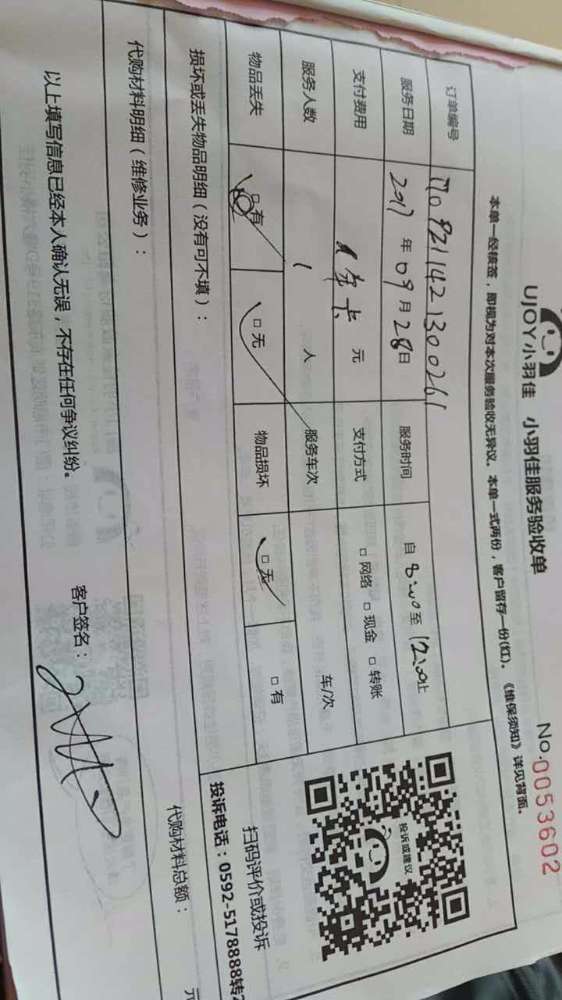 UJOY小羽佳 小羽佳服务验收单
No.0053602
本单一经核签，即视为对本次服务验收无异议。本单一式两份，客户留存一份(红)。《维保须知》详见背面。
订单编号
服务日期 2017年09月28日 服务时间 自8:00至12:00止
支付费用 年卡 元 支付方式 □网络 □现金 □转账
服务人数 1 人 服务车次 车/次
物品丢失 □有 □无 物品损坏 □无 □有
投诉或建议
扫码评价或投诉
投诉电话：0592-5178888转
损坏或丢失物品明细（没有可不填）：
代购材料明细（维修业务）：
代购材料总额： 元
以上填写信息已经本人确认无误，不存在任何争议纠纷。
客户签名：